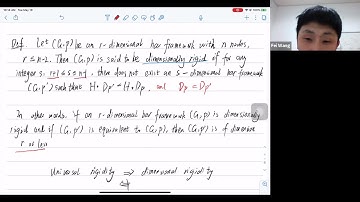 Def. Let (G,p) be an r-dimensional bar framework with n nodes,
r ≤ n-2. Then (G,p) is said to be dimensionally rigid if for any
integer s, r+1 ≤ s ≤ n-1, there does not exist an s-dimensional bar framework
(G,p') such that H∘Dp' = H∘Dp.
In other words, if an r-dimensional bar framework (G,p) is dimensionally
rigid and if (G,p') is equivalent to (G,p), then (G,p') is of dimension
r or less
Universal rigidity ⇒ dimensional rigidity
Pei Wang